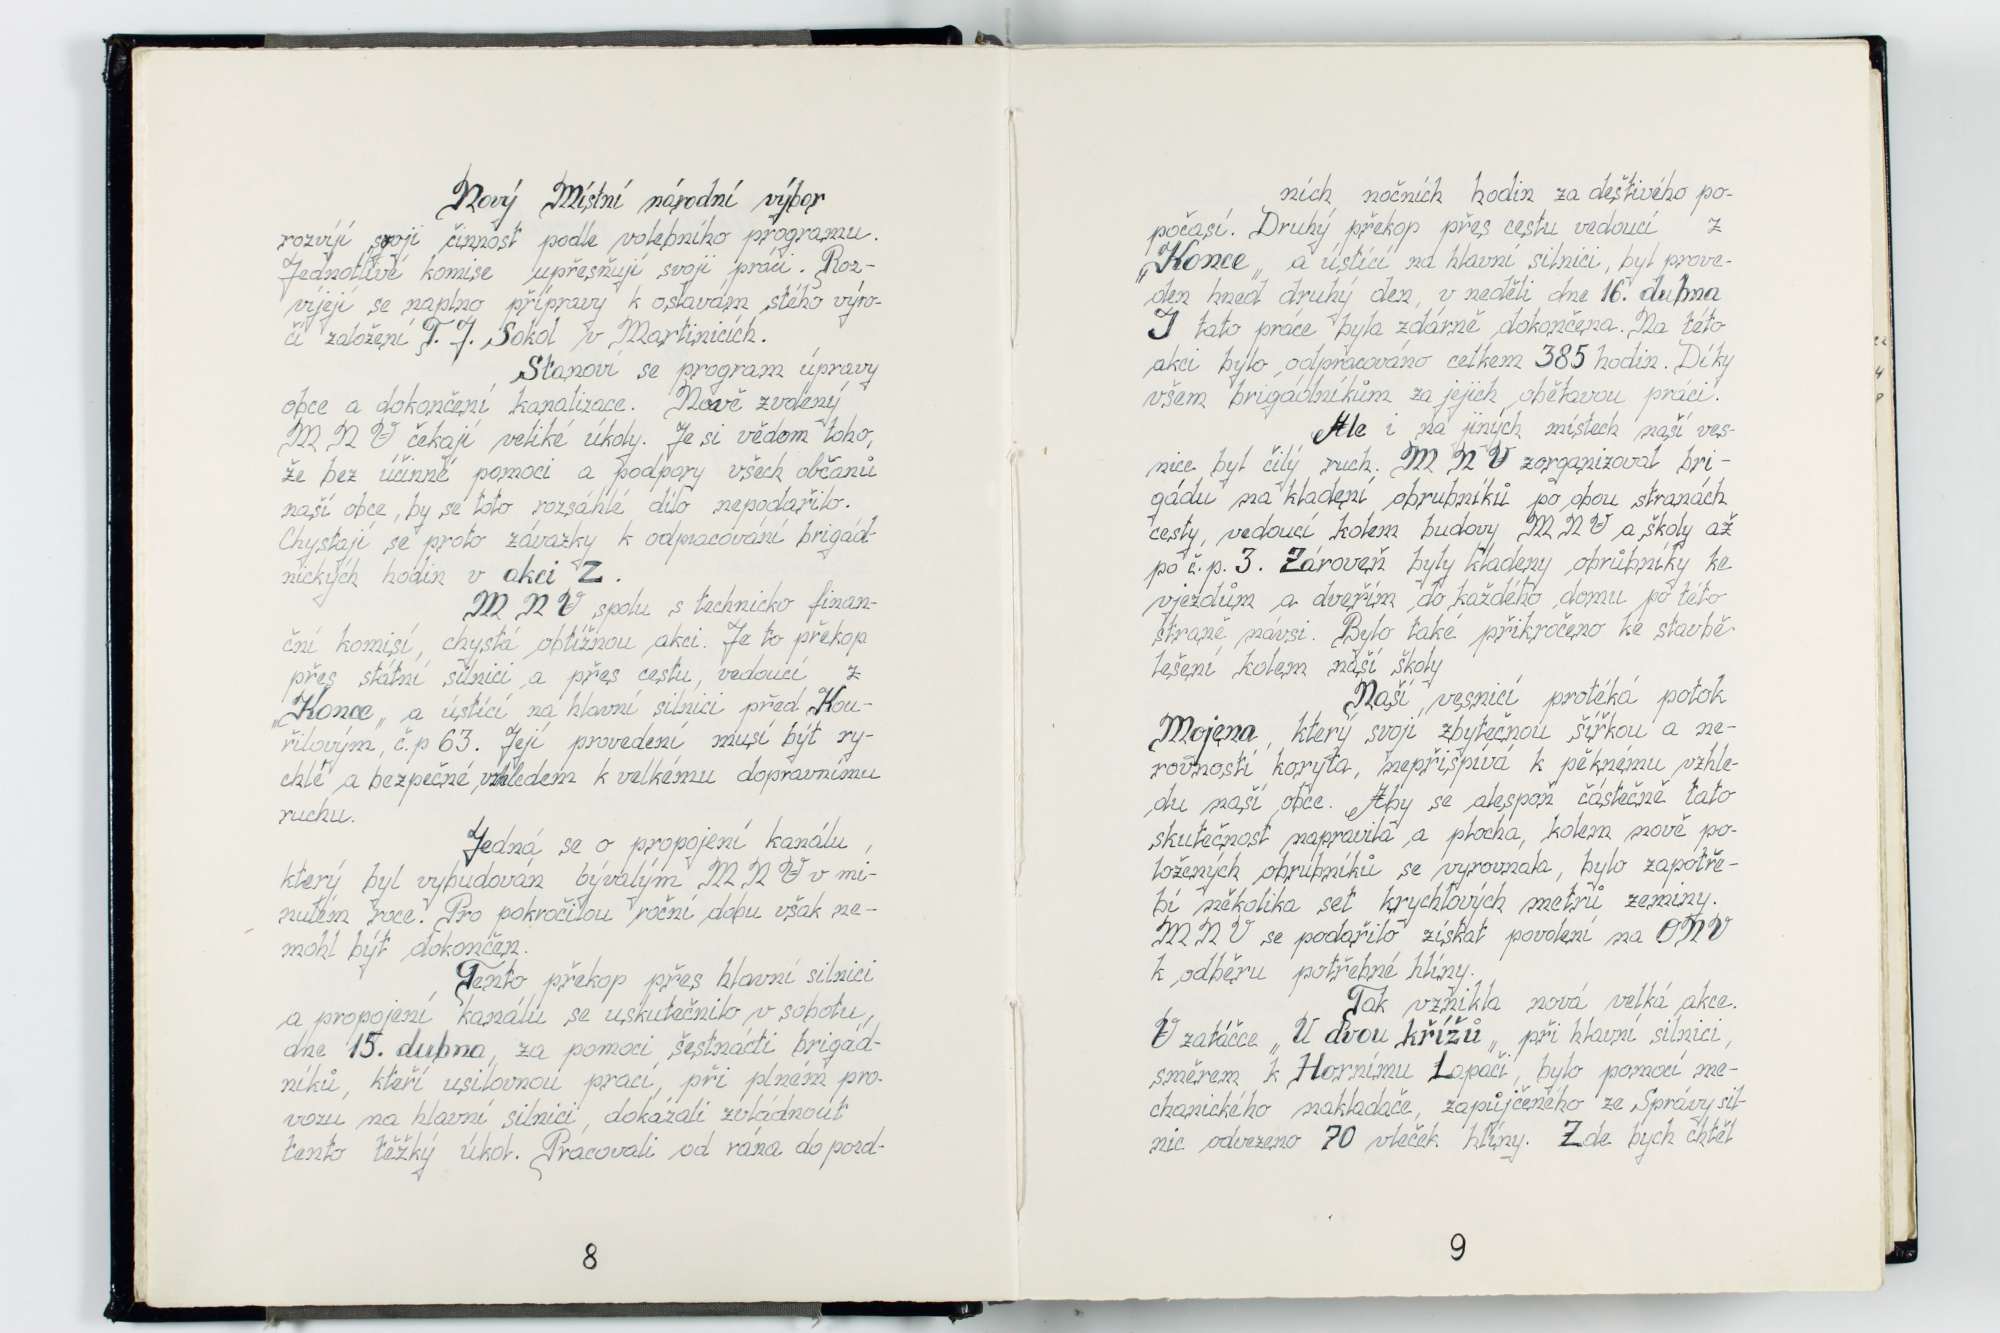 Nový Místní národní výbor
rozvíjí svoji činnost podle volebního programu.
Jednotlivé komise upřesňují svoji práci. Roz-
víjejí se naplno přípravy k oslavám stého výro-
čí založení T. J. Sokol v Martinicích.
Stanoví se program úpravy
obce a dokončení kanalizace. Nově zvolený
M N V čekají veliké úkoly. Je si vědom toho,
že bez účinné pomoci a podpory všech občanů
naší obce, by se toto rozsáhlé dílo nepodařilo.
Chystají se proto závazky k odpracování brigád-
nických hodin v akci Z.
M N V spolu s technicko finan-
ční komisí, chystá obtížnou akci. Je to překop
přes státní silnici a přes cestu, vedoucí z
„Konce„ a ústící na hlavní silnici před Kou-
řilovým, č.p 63. Její provedení musí být ry-
chlé a bezpečné vzhledem k velkému dopravnímu
ruchu.
Jedná se o propojení kanálu,
který byl vybudován bývalým M N V v mi-
nulém roce. Pro pokročilou roční dobu však ne-
mohl být dokončen.
Tento překop přes hlavní silnici
a propojení kanálu se uskutečnilo v sobotu,
dne 15. dubna, za pomoci šestnácti brigád-
níků, kteří usilovnou prací, při plném pro-
vozu na hlavní silnici, dokázali zvládnout
tento těžký úkol. Pracovali od rána do pozd-
8
ních nočních hodin za deštivého po-
počasí. Druhý překop přes cestu vedoucí z
„Konce„ a ústící na hlavní silnici, byl prove-
den hned druhý den, v neděli dne 16. dubna
I tato práce byla zdárně dokončena. Na této
akci bylo odpracováno celkem 385 hodin. Díky
všem brigádníkům za jejich obětavou práci.
Ale i na jiných místech naší ves-
nice byl čilý ruch. M N V zorganizoval bri-
gádu na kladení obrubníků po obou stranách
cesty, vedoucí kolem budovy M N V a školy až
po č.p. 3. Zároveň byly kladeny obrubníky ke
vjezdům a dveřím do každého domu po této
straně návsi. Bylo také přikročeno ke stavbě
lešení kolem naší školy
Naší vesnicí protéká potok
Mojena, který svojí zbytečnou šířkou a ne-
rovností koryta, nepřispívá k pěknému vzhle-
du naší obce. Aby se alespoň částečně tato
skutečnost napravila a plocha, kolem nově po-
ložených obrubníků se vyrovnala, bylo zapotře-
bí několika set krychlových metrů zeminy.
M N V se podařilo získat povolení na O N V
k odběru potřebné hlíny.
Tak vznikla nová velká akce.
V zatáčce „U dvou křížů„ při hlavní silnici,
směrem k Hornímu Lapači, bylo pomocí me-
chanického nakladače, zapůjčeného ze Správy sil-
nic odvezeno 70 vleček hlíny. Zde bych chtěl
9